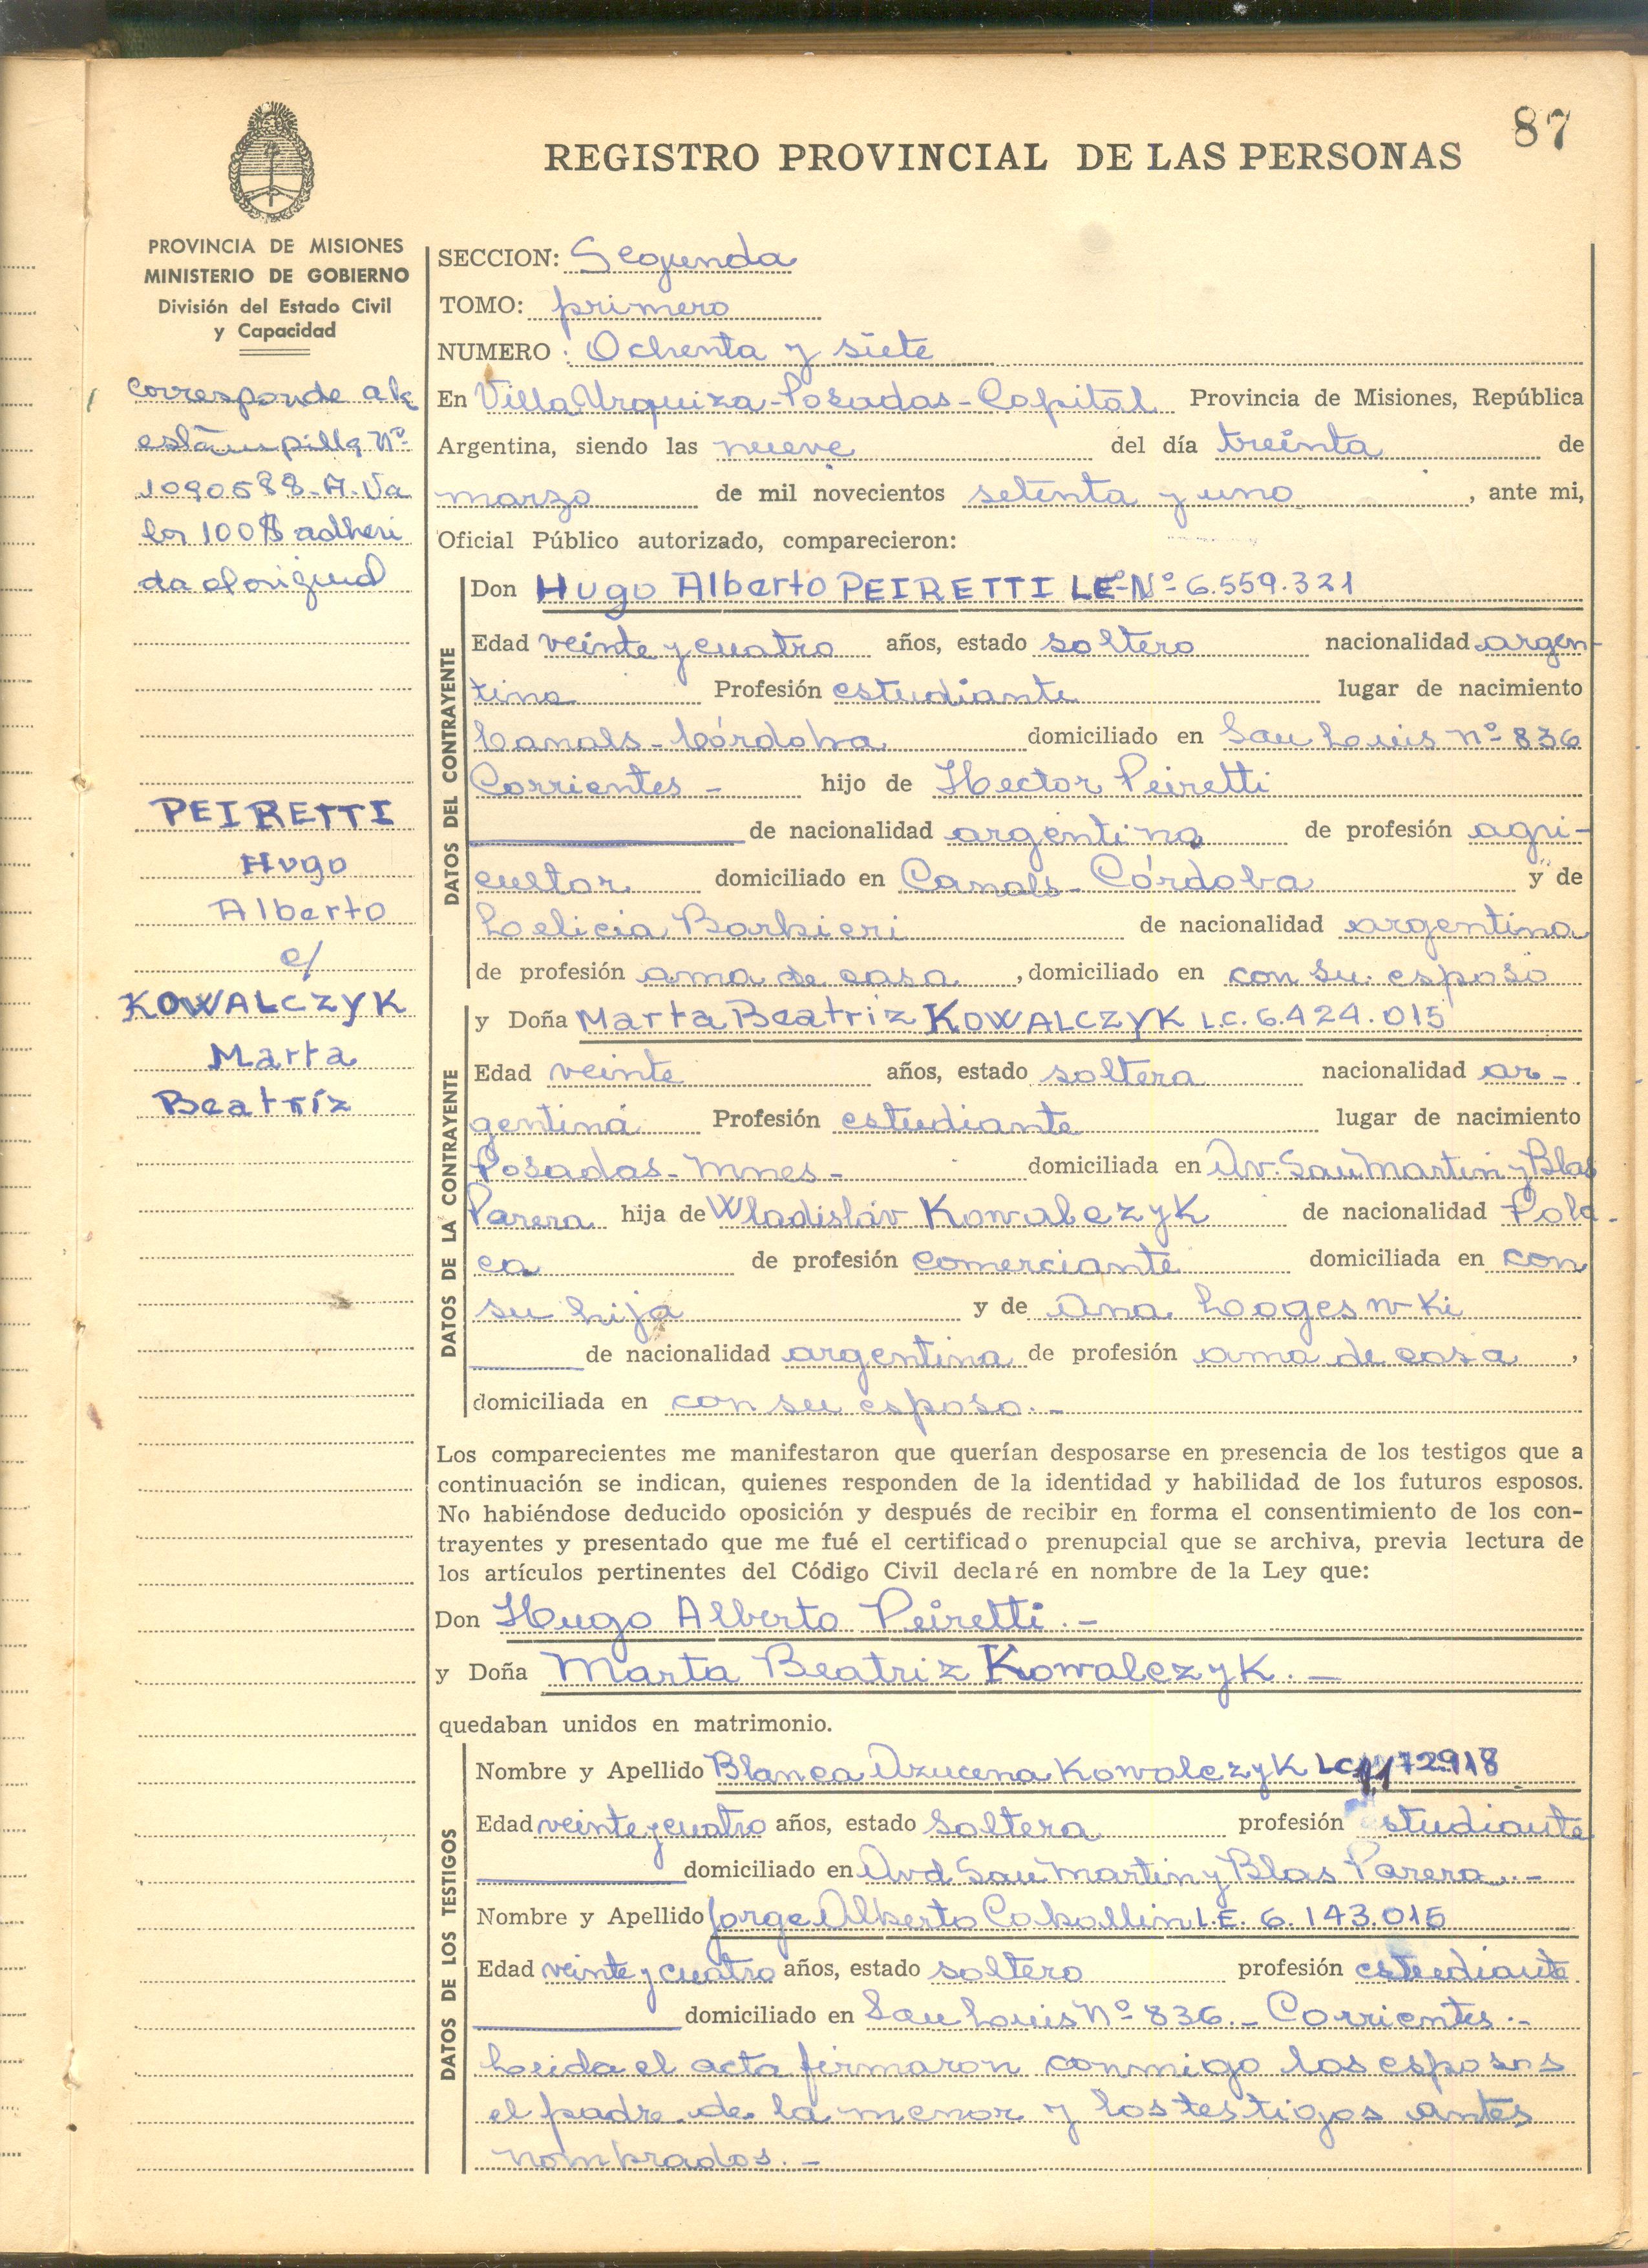 87
REGISTRO PROVINCIAL DE LAS PERSONAS
PROVINCIA DE MISIONES
MINISTERIO DE GOBIERNO
División del Estado Civil
y Capacidad
corresponde a la
estampilla Nº
1090588-A-Va
lor 100$ adheri
da al original
PEIRETTI
Hugo
Alberto
c/
KOWALCZYK
Marta
Beatríz
SECCION: Segunda
TOMO: primero
NUMERO: Ochenta y siete
En Villa Urquiza-Posadas-Capital Provincia de Misiones, República
Argentina, siendo las nueve del día treinta de
marzo de mil novecientos setenta y uno, ante mi,
Oficial Público autorizado, comparecieron:
DATOS DEL CONTRAYENTE
Don Hugo Alberto PEIRETTI LE-Nº 6.559.321
Edad veinte y cuatro años, estado soltero nacionalidad argen-
tina Profesión estudiante lugar de nacimiento
Canals-Córdoba domiciliado en San Luis nº 836
Corrientes - hijo de Hector Peiretti
de nacionalidad argentina de profesión agri-
cultor domiciliado en Canals-Córdoba y de
Lelicia Barbieri de nacionalidad argentina
de profesión ama de casa, domiciliado en con su esposo
DATOS DE LA CONTRAYENTE
y Doña Marta Beatriz KOWALCZYK L.C. 6.424.015
Edad veinte años, estado soltera nacionalidad ar-
gentina Profesión estudiante lugar de nacimiento
Posadas-Mnes- domiciliada en Av. San Martin y Blas
Parera hija de Wladisláv Kowalczyk de nacionalidad Pola-
ca de profesión comerciante domiciliada en con
su hija y de Ana Loogeswki
de nacionalidad argentina de profesión ama de casa,
domiciliada en con su esposo.-
Los comparecientes me manifestaron que querían desposarse en presencia de los testigos que a
continuación se indican, quienes responden de la identidad y habilidad de los futuros esposos.
No habiéndose deducido oposición y después de recibir en forma el consentimiento de los con-
trayentes y presentado que me fué el certificado prenupcial que se archiva, previa lectura de
los artículos pertinentes del Código Civil declaré en nombre de la Ley que:
Don Hugo Alberto Peiretti.-
y Doña Marta Beatriz Kowalczyk.-
quedaban unidos en matrimonio.
DATOS DE LOS TESTIGOS
Nombre y Apellido Blanca Azucena Kowalczyk LC
Edad veinte y cuatro años, estado Soltera profesión estudiante
domiciliado en Avd San Martin y Blas Parera.-
Nombre y Apellido Jorge Alberto L.E. 6.143.015
Edad veinte y cuatro años, estado soltero profesión estudiante
domiciliado en San Luis Nº 836.-Corrientes.-
Leida el acta firmaron conmigo los esposos
el padre de la menor y los testigos antes
nombrados.-